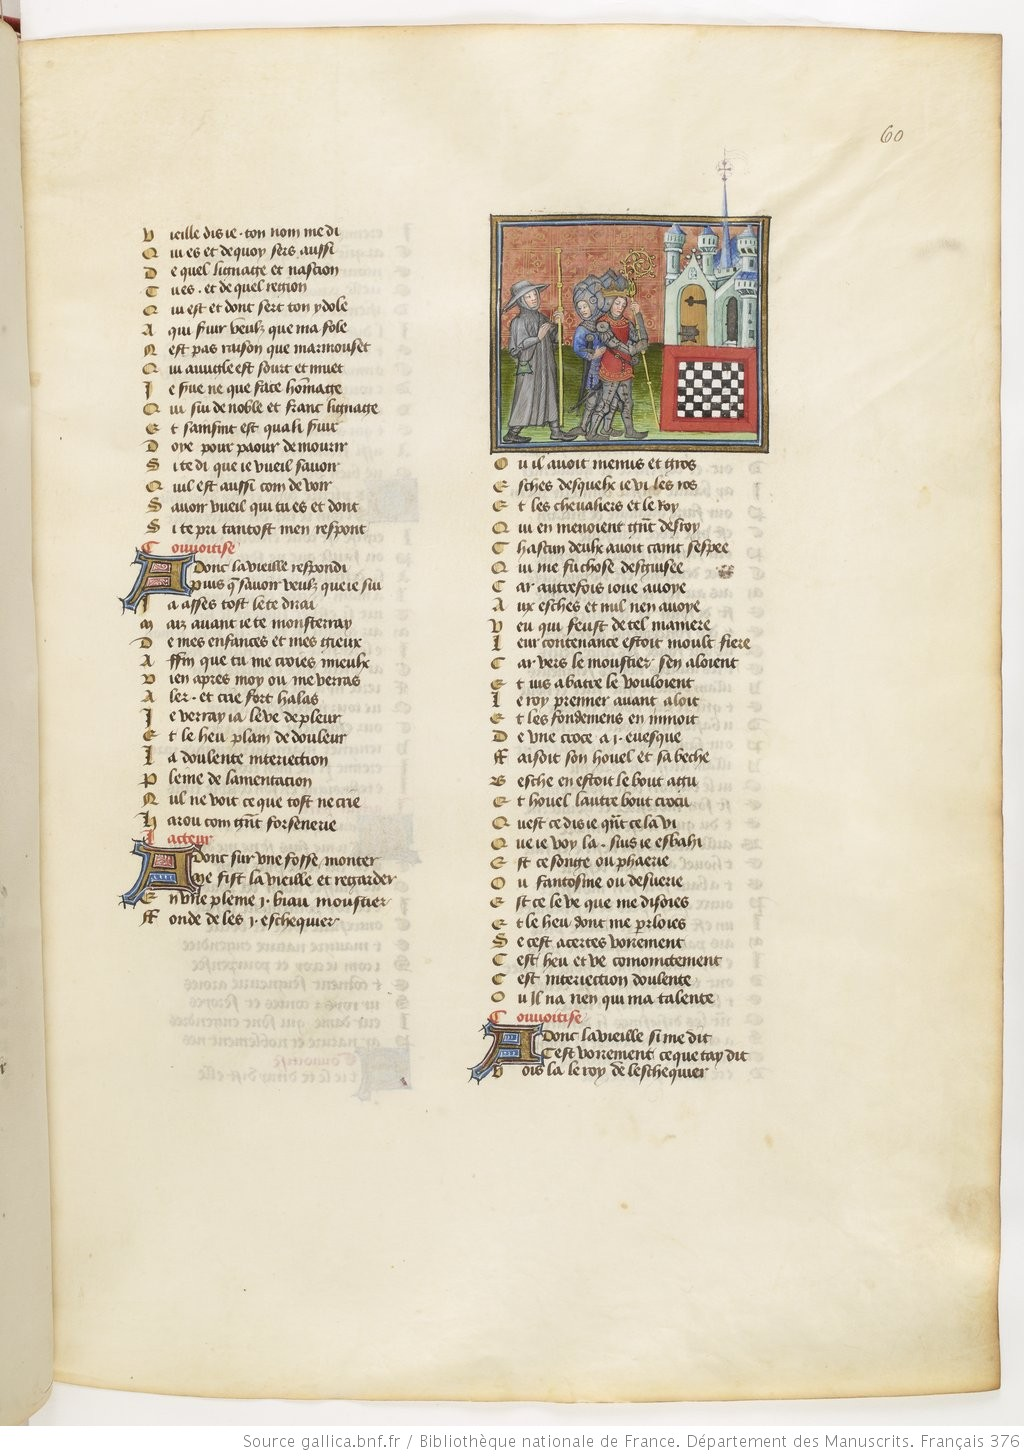 60
Vieille dis ie. ton nom me di
Qui es et de quoy sers aussi
De quel lignage et nascion
Tu es. et de quel region
Qui est et dont sert ton ydole
A qui seruir veulz que ma sole
Nest pas raison que marmouset
Qui auugle est sourt et muet
Je serue ne que face homage
Qui sui de noble et franc lignage
Et sainsint est quali seruir
Doye pour paour de mourir
Si te di que ie vueil sauoir
Quil est aussi com de voir
Sauoir vueil qui tu es et dont
Si te pri tantost men respont
Couuoitise
Adonc la vieille respondi
Puis q̄ sauoir veulz que ie sui
Ja asses tost le te dirai
Maiz auant ie te monsterray
De mes enfances et mes gieux
Affin que tu me croies mieulx
Vien apres moy ou me verras
Aler. et crie fort halas
Je verray ia le ve de pleur
Et le heu plain de douleur
La doulente interiection
Pleine de lamentacion
Nul ne voit ce que tost ne crie
Harou com gñt forsenerie
Lacteur
Adonc sur vne fosse monter
Me fist la vieille et regarder
En vne pleine .i. biau moustier
Fonde de les .i. eschequier
Ou il auoit menus et gros
Esches desquelx ie vi les ros
Et les cheualiers et le roy
Qui en menoient gñt desroy
Chascun deulx auoit caint sespee
Qui me fu chose desguisee
Car autrefois ioue auoye
Aux esches et mil nen auoye
Veu qui feust de tel maniere
Leur contenance estoit moult fiere
Car vers le moustier sen aloient
Et tuis abatre le vouloient
Le roy premier auant aloit
Et les fondemens en minoit
De vne croce a .i. euesque
Faisoit son houel et sa beche
Besche en estoit le bout agu
Et houel lautre bout crocu
Quest ce dis ie qñt ce la vi
Que ie voy la. suis ie esbahi
Est ce songe ou phaerie
Ou fantosme ou desuerie
Est ce le ve que me disoies
Et le heu dont me parloies
Se cest acertes voirement
Cest heu et ve comoinctement
Cest interiection doulente
Ou il na rien qui ma talente
Couuoitise
Adonc la vieille si me dit
Cest voirement ce que tay dit
Vois la le roy de leschequier
Source gallica.bnf.fr / Bibliothèque nationale de France. Département des Manuscrits. Français 376